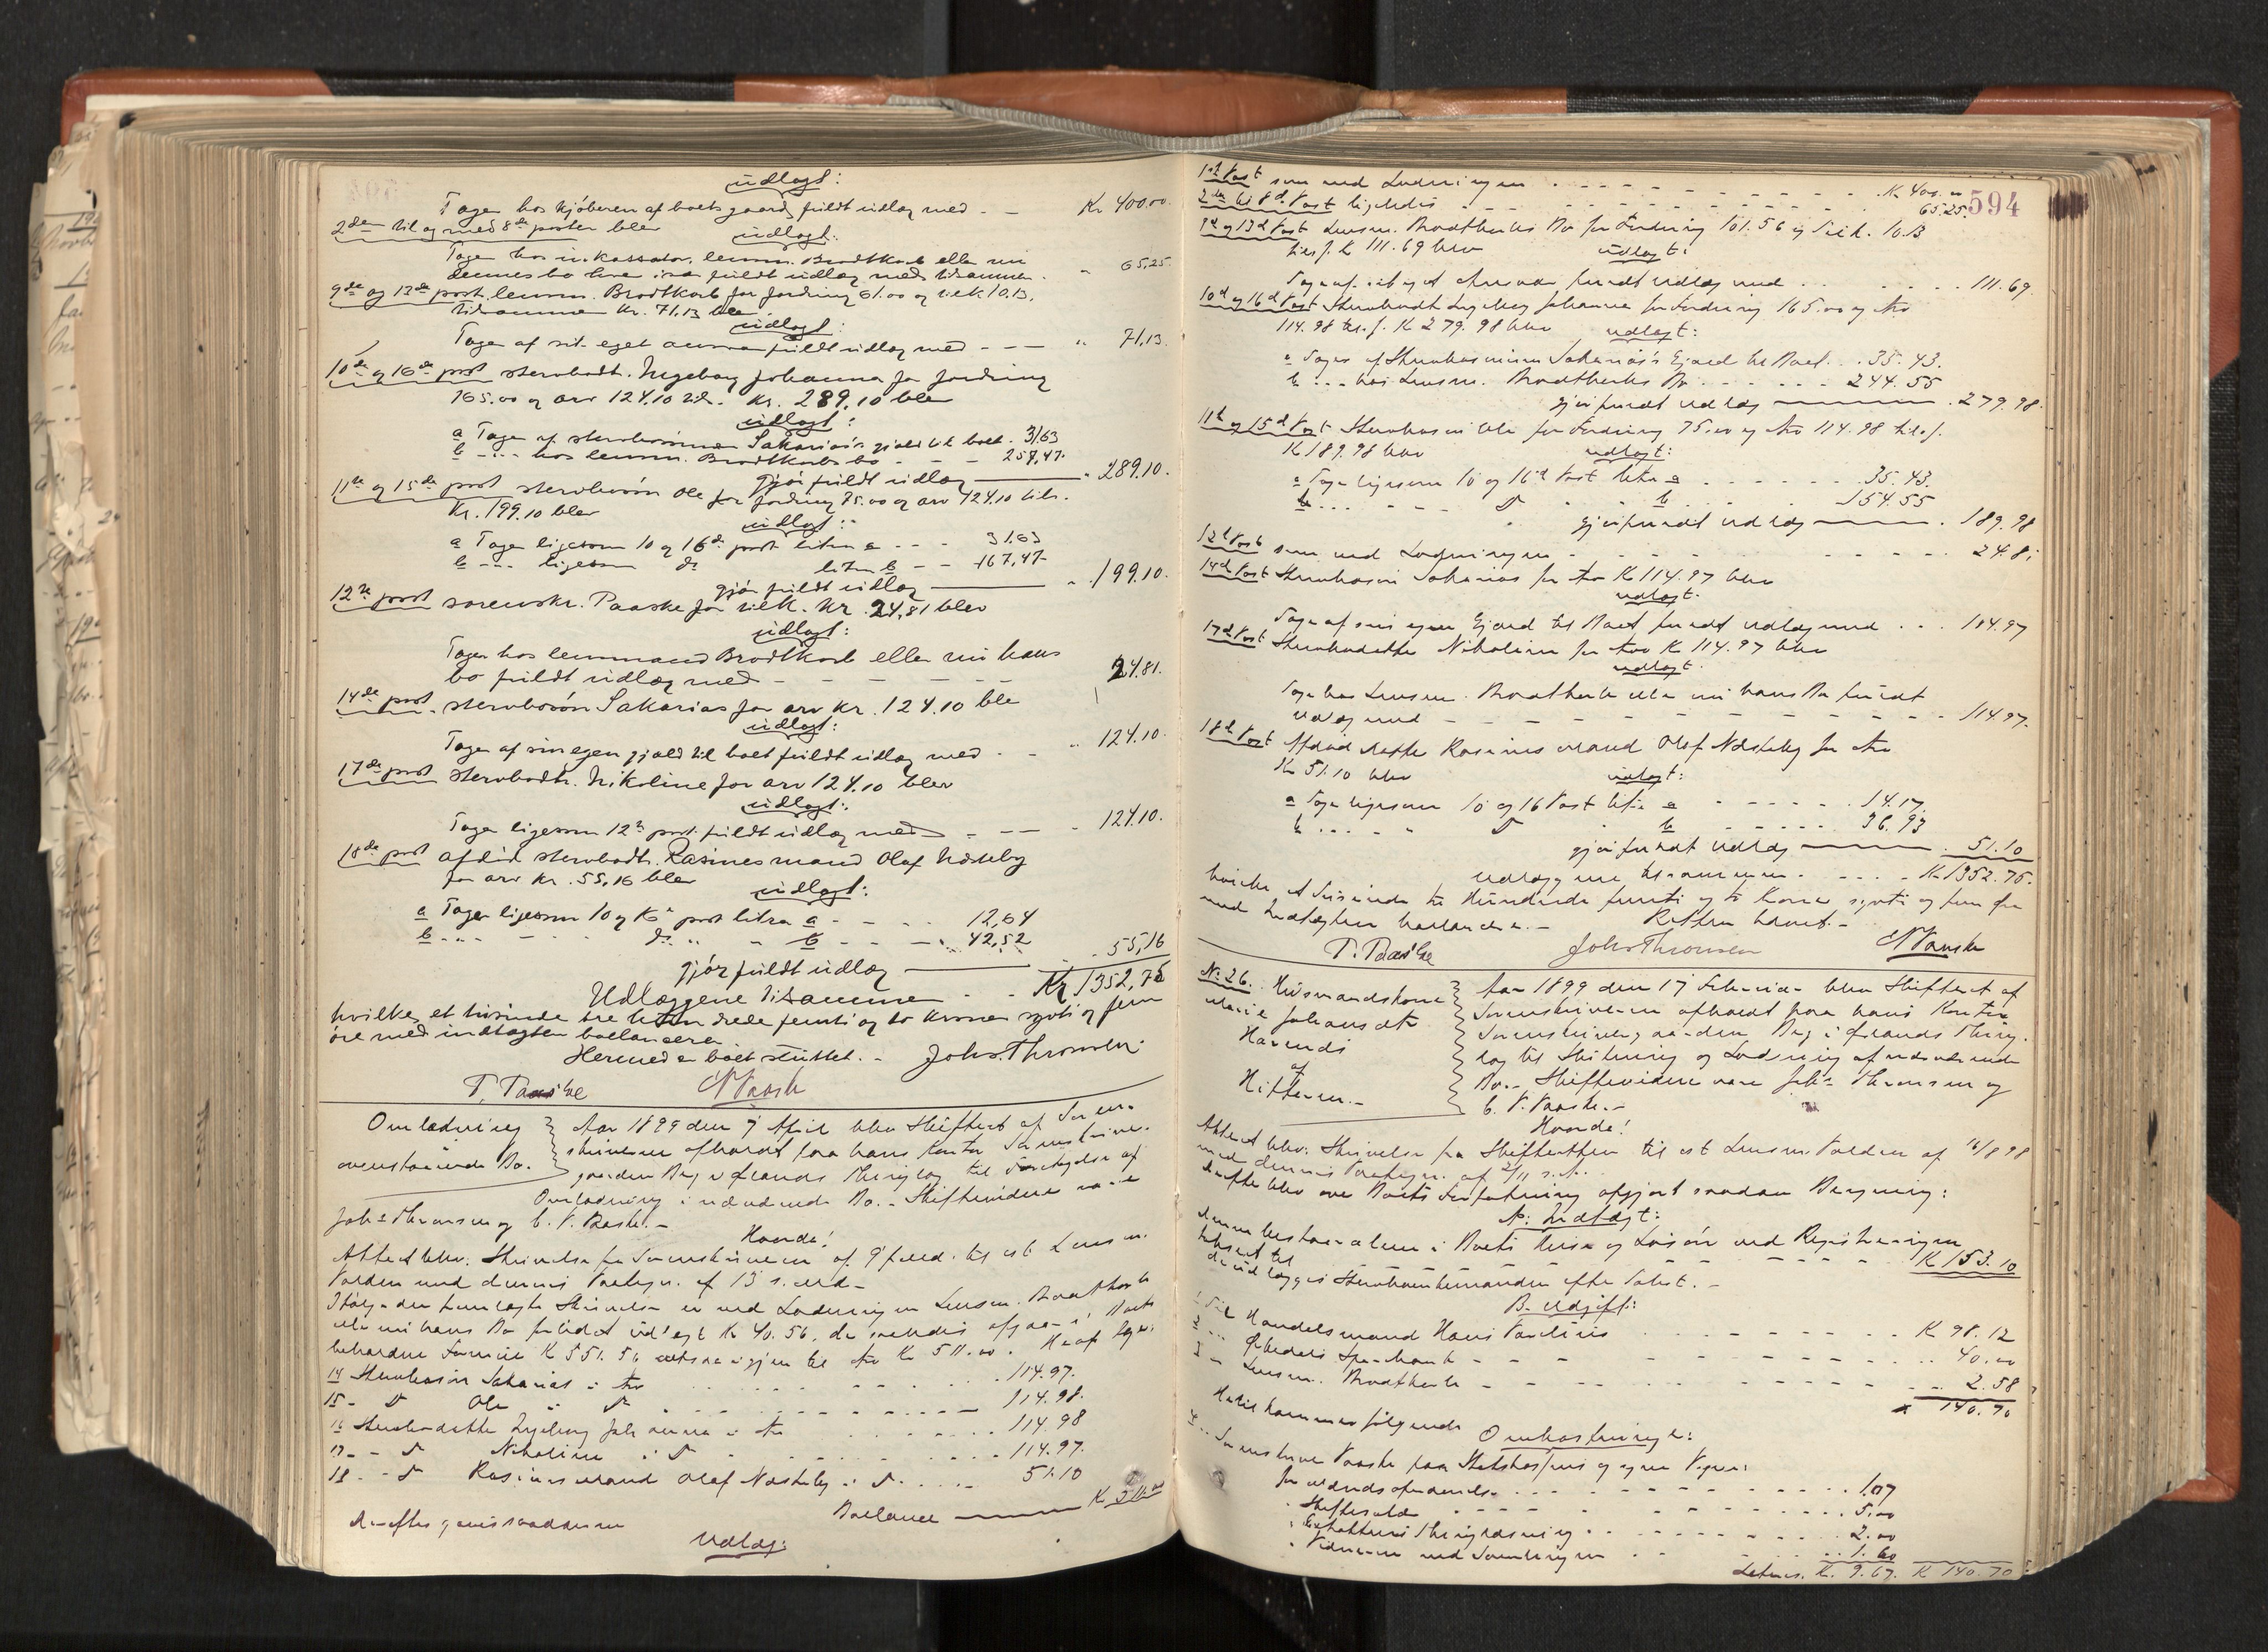 udlagt:
Tager hos kjøberen af boets gaard fuldt udlæg med - - Kr 400.00.
2de til og med 8de poster blev
udlagt:
Tager hos inkassator, lensm. Brodtkorb eller in
dennes bo fuldt udlæg med tilsammen - " 65,25.
9de og 13de post. lensm. Brodtkorb for fordring 61.00 og tilk 10.13,
tilsammen Kr. 71.13 blev
udlagt:
Tager af sit eget ansvar fuldt udlæg med - - - " 71,13.
10de og 16de post stervbodt. Ingeborg Johanna for fordring
165.00 og arv 124.10 tils. Kr. 289.10 blev
udlagt:
a Tager af stervbosønnen Sakarias's gjæld til boet. 31.63
b - " - hos lensm. Brodtkorbs bo - - - 257,47.
gjør fuldt udlæg - " 289.10.
11te og 15de post stervbosøn Ole for fordring 75.00 og arv 124.10 tils.
Kr. 199.10 blev
udlagt:
a Tager ligesom 10 og 16de post litra a - - - 31.63
b - " - ligesom do litra b - - 167,47
gjør fuldt udlæg - " 199.10.
12te post sorenskr. Paaske for tilk. Kr. 24,81 blev
udlagt:
Tager hos lensmand Brodtkorb eller in hans
bo fuldt udlæg med - - - - - - 24.81.
14de post. stervbosøn Sakarias for arv Kr. 124.10 blev
udlagt:
Tager af sin egen gjæld til boet fuldt udlæg med - - " 124.10.
17de post stervbodtr. Nikoline for arv 124.10 blev
udlagt:
Tager ligesom 12te post. fuldt udlæg med - - - - 124.10.
18de post afdød stervbodtr. Rasines mand Olaf Næsteby
for arv Kr. 55,16 blev
udlagt:
a Tager ligesom 10 og 16de post litra a - - - 12,64
b - " - - - do " " b - - - 42,52
gjør fuldt udlæg - 55,16
Udlæggene tilsammen - - Kr 1352,75
hvilke et tusinde tre hundrede femti og to kroner sytti og fem
øre med indtægten ballancere
Hermed er boet sluttet. - Johs. Thronsen
T. Paaske
Omlodning
ovenstaaende Bo.
Aar 1899 den 7 April blev Skifteret af Soren-
skriveren afholdt paa hans Kontor Sorenskriver-
gaarden Bag i Ørlands Thinglag til Foretagelse af
Omlodning i nærværende Bo. - Skiftevidner vare
Johs Thronsen og C. V. Paaske. -
Hvorda!
Akteret blev: Skrivelse fra Sorenskriveren af 9 til cst Lensm.
Volden med dennes Paategn. af 13 s. Md. -
Ifølge den fremlagte Skrivelse er ved Lodningen Lensm. Brodtkorb
eller in hans Bo forlidet udlagt K 40.56, der saaledes afgaar i Boets
beholdne Formue K 551.56 igjen til Arv Kr 511.00. Heraf
14 Stervbosøn Sakarias i Arv . . . . . 114.97.
15 - D Ole " D - - - - - - 114.98.
16 Stervbodatter Ingeborg Johanna i Arv . . . . 114.98
17 - - D Nikoline i D - . . . . 114.97.
18 - - D Rasines Mand Olaf Næsteby i D. . . . . 51.10
Ballance - K
Derefter gjøres saadanne
Udlæg:
594
1st Post som ved Lodningen . - - - - - - - - K 400. "
2den til 8d. Post ligeledes - - - - - - - 65.25.
9d og 13d Post Lensm. Brodtkorbs Bo for Fordring 101.56 og Tilk. 10.13
tils. K 111.69 blev udlagt:
Tager af sit eget Ansvar fuldt Udlæg med . . . . . 111.69.
10d og 16d Post Stervbodt Ingeborg Johanna for Fordring 165.00 og Arv
114.98 tils. K 279.98 blev udlagt:
a Tager af Stervbosønnen Sakarias's Gjæld til Boet . . 35.43.
b . . . hos Lensm. Brodtkorbs Bo . - - - - - 244.55
gjør fuldt Udlæg - . 279.98.
11te og 15d Post Stervbosøn Ole for Fordring 75.00 og Arv 114.98 tils.
K 189.98 blev udlagt:
a Tager ligesom 10 og 16d Post litra a . - - - - . 35.43.
b . . . - - - D b - - - - 154.55
gjør fuldt Udlæg - . 189.98
12te Post som ved Lodningen - - - - - - - 24.81
14de Post Stervbosøn Sakarias for Arv K 114.97 blev
udlagt.
Tager af sin egen Gjæld til Boet fuldt Udlæg med . . . 114.97
17d Post Stervbodatter Nikoline for Arv K 114.97 blev
udlagt.
Tager hos Lensm. Brodtkorb eller in hans Bo fuldt
Udlæg med - - - - - - - - - - - 114.97.
18de Post Afdød Datter Rasines Mand Olaf Næsteby for Arv
Kr 51.10 blev udlagt:
a Tager ligesom 10 og 16 Post litra a - - - - . 14.17.
b . . . - - D b . . . . . 36.93
gjør fuldt Udlæg - . 51.10
Udlæggene tilsammen . - - - . K 1352.75.
hvilke et Tusinde tre Hundrede femti og to Kroner sytti og fem Øre
med Indtægten ballancere. - Retten hævet. -
T. Paaske Johs Thronsen
No 26. Husmandskone
Marie Johansdtr
Havends
af
Hitteren. -
Aar 1899 den 17 Februar blev Skifteret af
Sorenskriveren afholdt paa hans Kontor
Sorenskrivergaarden Bag i Ørlands Thing-
lag til Slutning og Lodning af nærværende
Bo. - Skiftevidner vare Johs Thronsen og
C. V. Paaske. -
Hvorda!
Akteret blev: Skrivelse fra Skifteretten til cst Lensm. Volden af 16/8 98
med dennes Paategn. af 2/11 s. A. -
Derefter blev over Boets Forfatning opgjort saadan Beregning:
A: Indtægt:
Denne bestaar alene i Boets Gods og Løsøre ved Registreringen
taxeret til - - - - - - - - - - K 153.10
der udlægges Stervboenkemanden efter Taxt. -
B. Udgift:
1 Til Handelsmand Hans Paulsens . - - - - - - K 98.12
2 - " Sparebank - - - - - - - - - - .. 40.00
3 - Lensm. Brodtkorb - - - - - - - - - - .. 2.58
K 140.70
Hertil kommer følgende Omkostninger:
4 . . Sorenskriver Paaske paa Statskassens og egne Vegne:
for . . . . - - - - - - . . . 1.07
" Skiftesalær - - - - - - - - . . 5.00
" Thinglæsning . . . - - - - - . . . 2.00
" Vidnerne ved Samlingen . - - - - . . . 1.60
Latus. K. 9.67. K 140.70